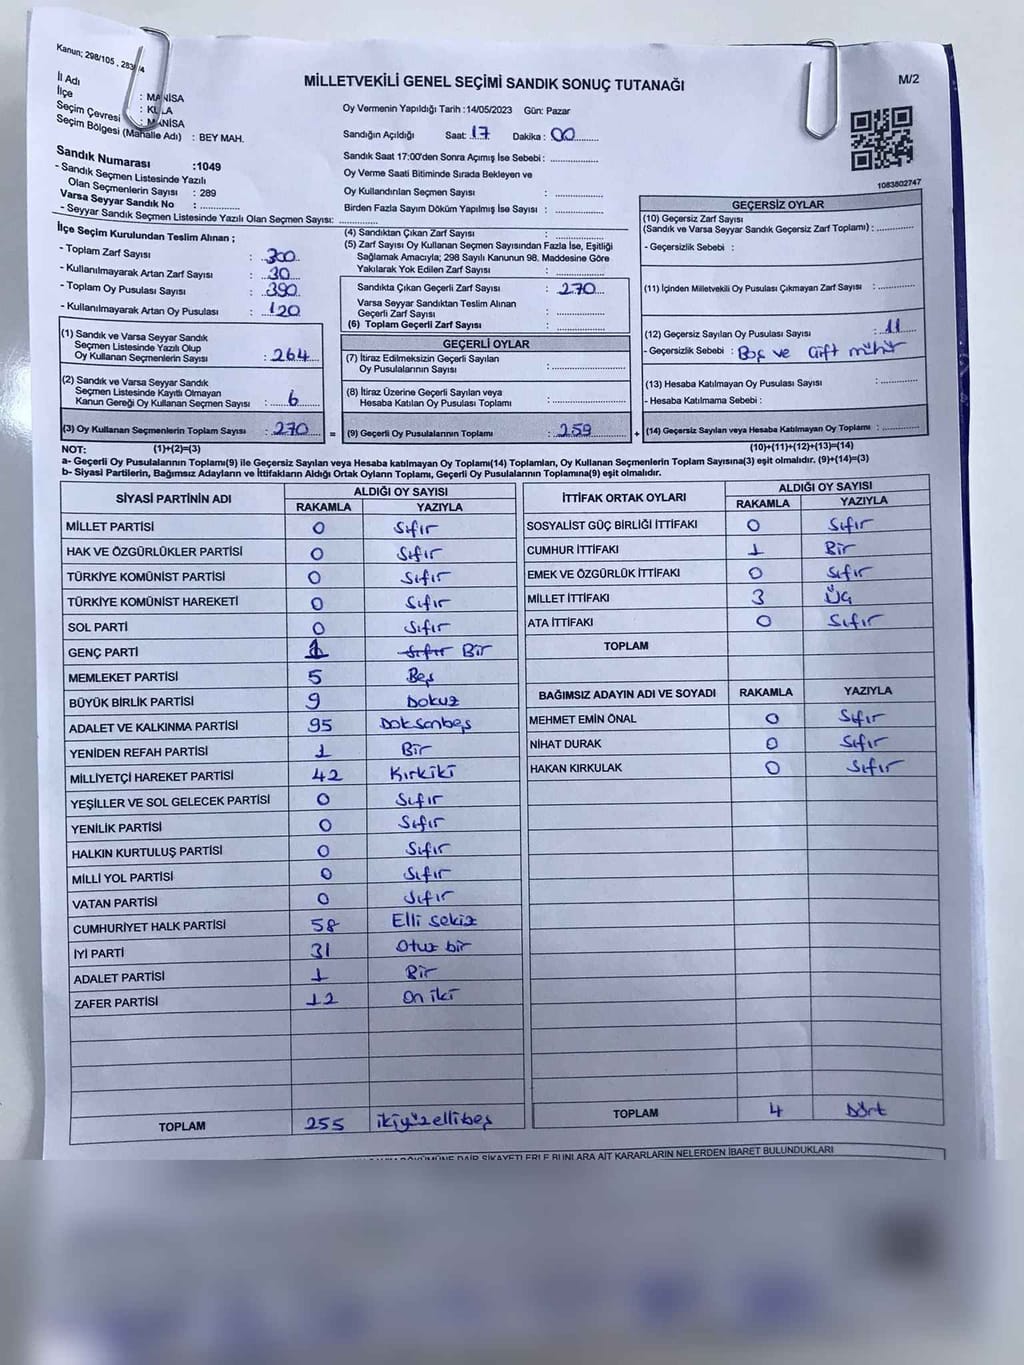 Kanun; 298/105 , 283
M/2
MİLLETVEKİLİ GENEL SEÇİMİ SANDIK SONUÇ TUTANAĞI
İl Adı : MANİSA
İlçe : KULA
Seçim Çevresi : MANİSA
Seçim Bölgesi (Mahalle Adı) : BEY MAH.
Oy Vermenin Yapıldığı Tarih :14/05/2023 Gün: Pazar
Sandığın Açıldığı Saat: 17 Dakika : 00
Sandık Saat 17:00'den Sonra Açımış İse Sebebi :
Oy Verme Saati Bitiminde Sırada Bekleyen ve
Oy Kullandırılan Seçmen Sayısı :
Birden Fazla Sayım Döküm Yapılmış İse Sayısı :
1083802747
Sandık Numarası :1049
- Sandık Seçmen Listesinde Yazılı
Olan Seçmenlerin Sayısı : 289
Varsa Seyyar Sandık No :
- Seyyar Sandık Seçmen Listesinde Yazılı Olan Seçmen Sayısı:
İlçe Seçim Kurulundan Teslim Alınan ;
- Toplam Zarf Sayısı : 300
- Kullanılmayarak Artan Zarf Sayısı : 30
- Toplam Oy Pusulası Sayısı : 390
- Kullanılmayarak Artan Oy Pusulası : 120
(1) Sandık ve Varsa Seyyar Sandık
Seçmen Listesinde Yazılı Olup
Oy Kullanan Seçmenlerin Sayısı : 264
(2) Sandık ve Varsa Seyyar Sandık
Seçmen Listesinde Kayıtlı Olmayan
Kanun Gereği Oy Kullanan Seçmen Sayısı : 6
(3) Oy Kullanan Seçmenlerin Toplam Sayısı : 270 =
(4) Sandıktan Çıkan Zarf Sayısı :
(5) Zarf Sayısı Oy Kullanan Seçmen Sayısından Fazla İse, Eşitliği
Sağlamak Amacıyla; 298 Sayılı Kanunun 98. Maddesine Göre
Yakılarak Yok Edilen Zarf Sayısı :
Sandıkta Çıkan Geçerli Zarf Sayısı : 270
Varsa Seyyar Sandıktan Teslim Alınan
Geçerli Zarf Sayısı :
(6) Toplam Geçerli Zarf Sayısı :
GEÇERLİ OYLAR
(7) İtiraz Edilmeksizin Geçerli Sayılan
Oy Pusulalarının Sayısı :
(8) İtiraz Üzerine Geçerli Sayılan veya
Hesaba Katılan Oy Pusulası Toplamı :
(9) Geçerli Oy Pusulalarının Toplamı : 259 +
GEÇERSİZ OYLAR
(10) Geçersiz Zarf Sayısı
(Sandık ve Varsa Seyyar Sandık Geçersiz Zarf Toplamı) :
- Geçersizlik Sebebi :
(11) İçinden Milletvekili Oy Pusulası Çıkmayan Zarf Sayısı :
(12) Geçersiz Sayılan Oy Pusulası Sayısı : 11
- Geçersizlik Sebebi : Boş ve Çift mühür
(13) Hesaba Katılmayan Oy Pusulası Sayısı :
- Hesaba Katılmama Sebebi :
(14) Geçersiz Sayılan veya Hesaba Katılmayan Oy Toplamı :
NOT: (1)+(2)=(3) (10)+(11)+(12)+(13)=(14)
a- Geçerli Oy Pusulalarının Toplamı(9) ile Geçersiz Sayılan veya Hesaba katılmayan Oy Toplamı(14) Toplamları, Oy Kullanan Seçmenlerin Toplam Sayısına(3) eşit olmalıdır. (9)+(14)=(3)
b- Siyasi Partilerin, Bağımsız Adayların ve İttifakların Aldığı Ortak Oyların Toplamı, Geçerli Oy Pusulalarının Toplamına(9) eşit olmalıdır.
SİYASİ PARTİNİN ADI ALDIĞI OY SAYISI
RAKAMLA YAZIYLA
MİLLET PARTİSİ 0 Sıfır
HAK VE ÖZGÜRLÜKLER PARTİSİ 0 Sıfır
TÜRKİYE KOMÜNİST PARTİSİ 0 Sıfır
TÜRKİYE KOMÜNİST HAREKETİ 0 Sıfır
SOL PARTİ 0 Sıfır
GENÇ PARTİ 1 Sıfır Bir
MEMLEKET PARTİSİ 5 Beş
BÜYÜK BİRLİK PARTİSİ 9 Dokuz
ADALET VE KALKINMA PARTİSİ 95 Doksanbeş
YENİDEN REFAH PARTİSİ 1 Bir
MİLLİYETÇİ HAREKET PARTİSİ 42 Kırkiki
YEŞİLLER VE SOL GELECEK PARTİSİ 0 Sıfır
YENİLİK PARTİSİ 0 Sıfır
HALKIN KURTULUŞ PARTİSİ 0 Sıfır
MİLLİ YOL PARTİSİ 0 Sıfır
VATAN PARTİSİ 0 Sıfır
CUMHURİYET HALK PARTİSİ 58 Elli sekiz
İYİ PARTİ 31 Otuz bir
ADALET PARTİSİ 1 Bir
ZAFER PARTİSİ 12 On iki
TOPLAM 255 ikiyüzellibeş
İTTİFAK ORTAK OYLARI ALDIĞI OY SAYISI
RAKAMLA YAZIYLA
SOSYALİST GÜÇ BİRLİĞİ İTTİFAKI 0 Sıfır
CUMHUR İTTİFAKI 1 Bir
EMEK VE ÖZGÜRLÜK İTTİFAKI 0 Sıfır
MİLLET İTTİFAKI 3 Üç
ATA İTTİFAKI 0 Sıfır
TOPLAM
BAĞIMSIZ ADAYIN ADI VE SOYADI RAKAMLA YAZIYLA
MEHMET EMİN ÖNAL 0 Sıfır
NİHAT DURAK 0 Sıfır
HAKAN KIRKULAK 0 Sıfır
TOPLAM 4 Dört
DÖKÜMÜNE DAİR ŞİKAYETLERLE BUNLARA AİT KARARLARIN NELERDEN İBARET BULUNDUKLARI